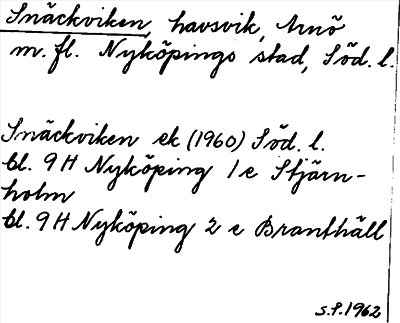 Snäckviken, havsvik, Arnö
m. fl. Nyköpings stad, Söd. l.
Snäckviken ek (1960) Söd. l.
bl. 9 H Nyköping 1 e Stjärn-
holm
bl. 9 H Nyköping 2 e Branthäll
S.P. 1962